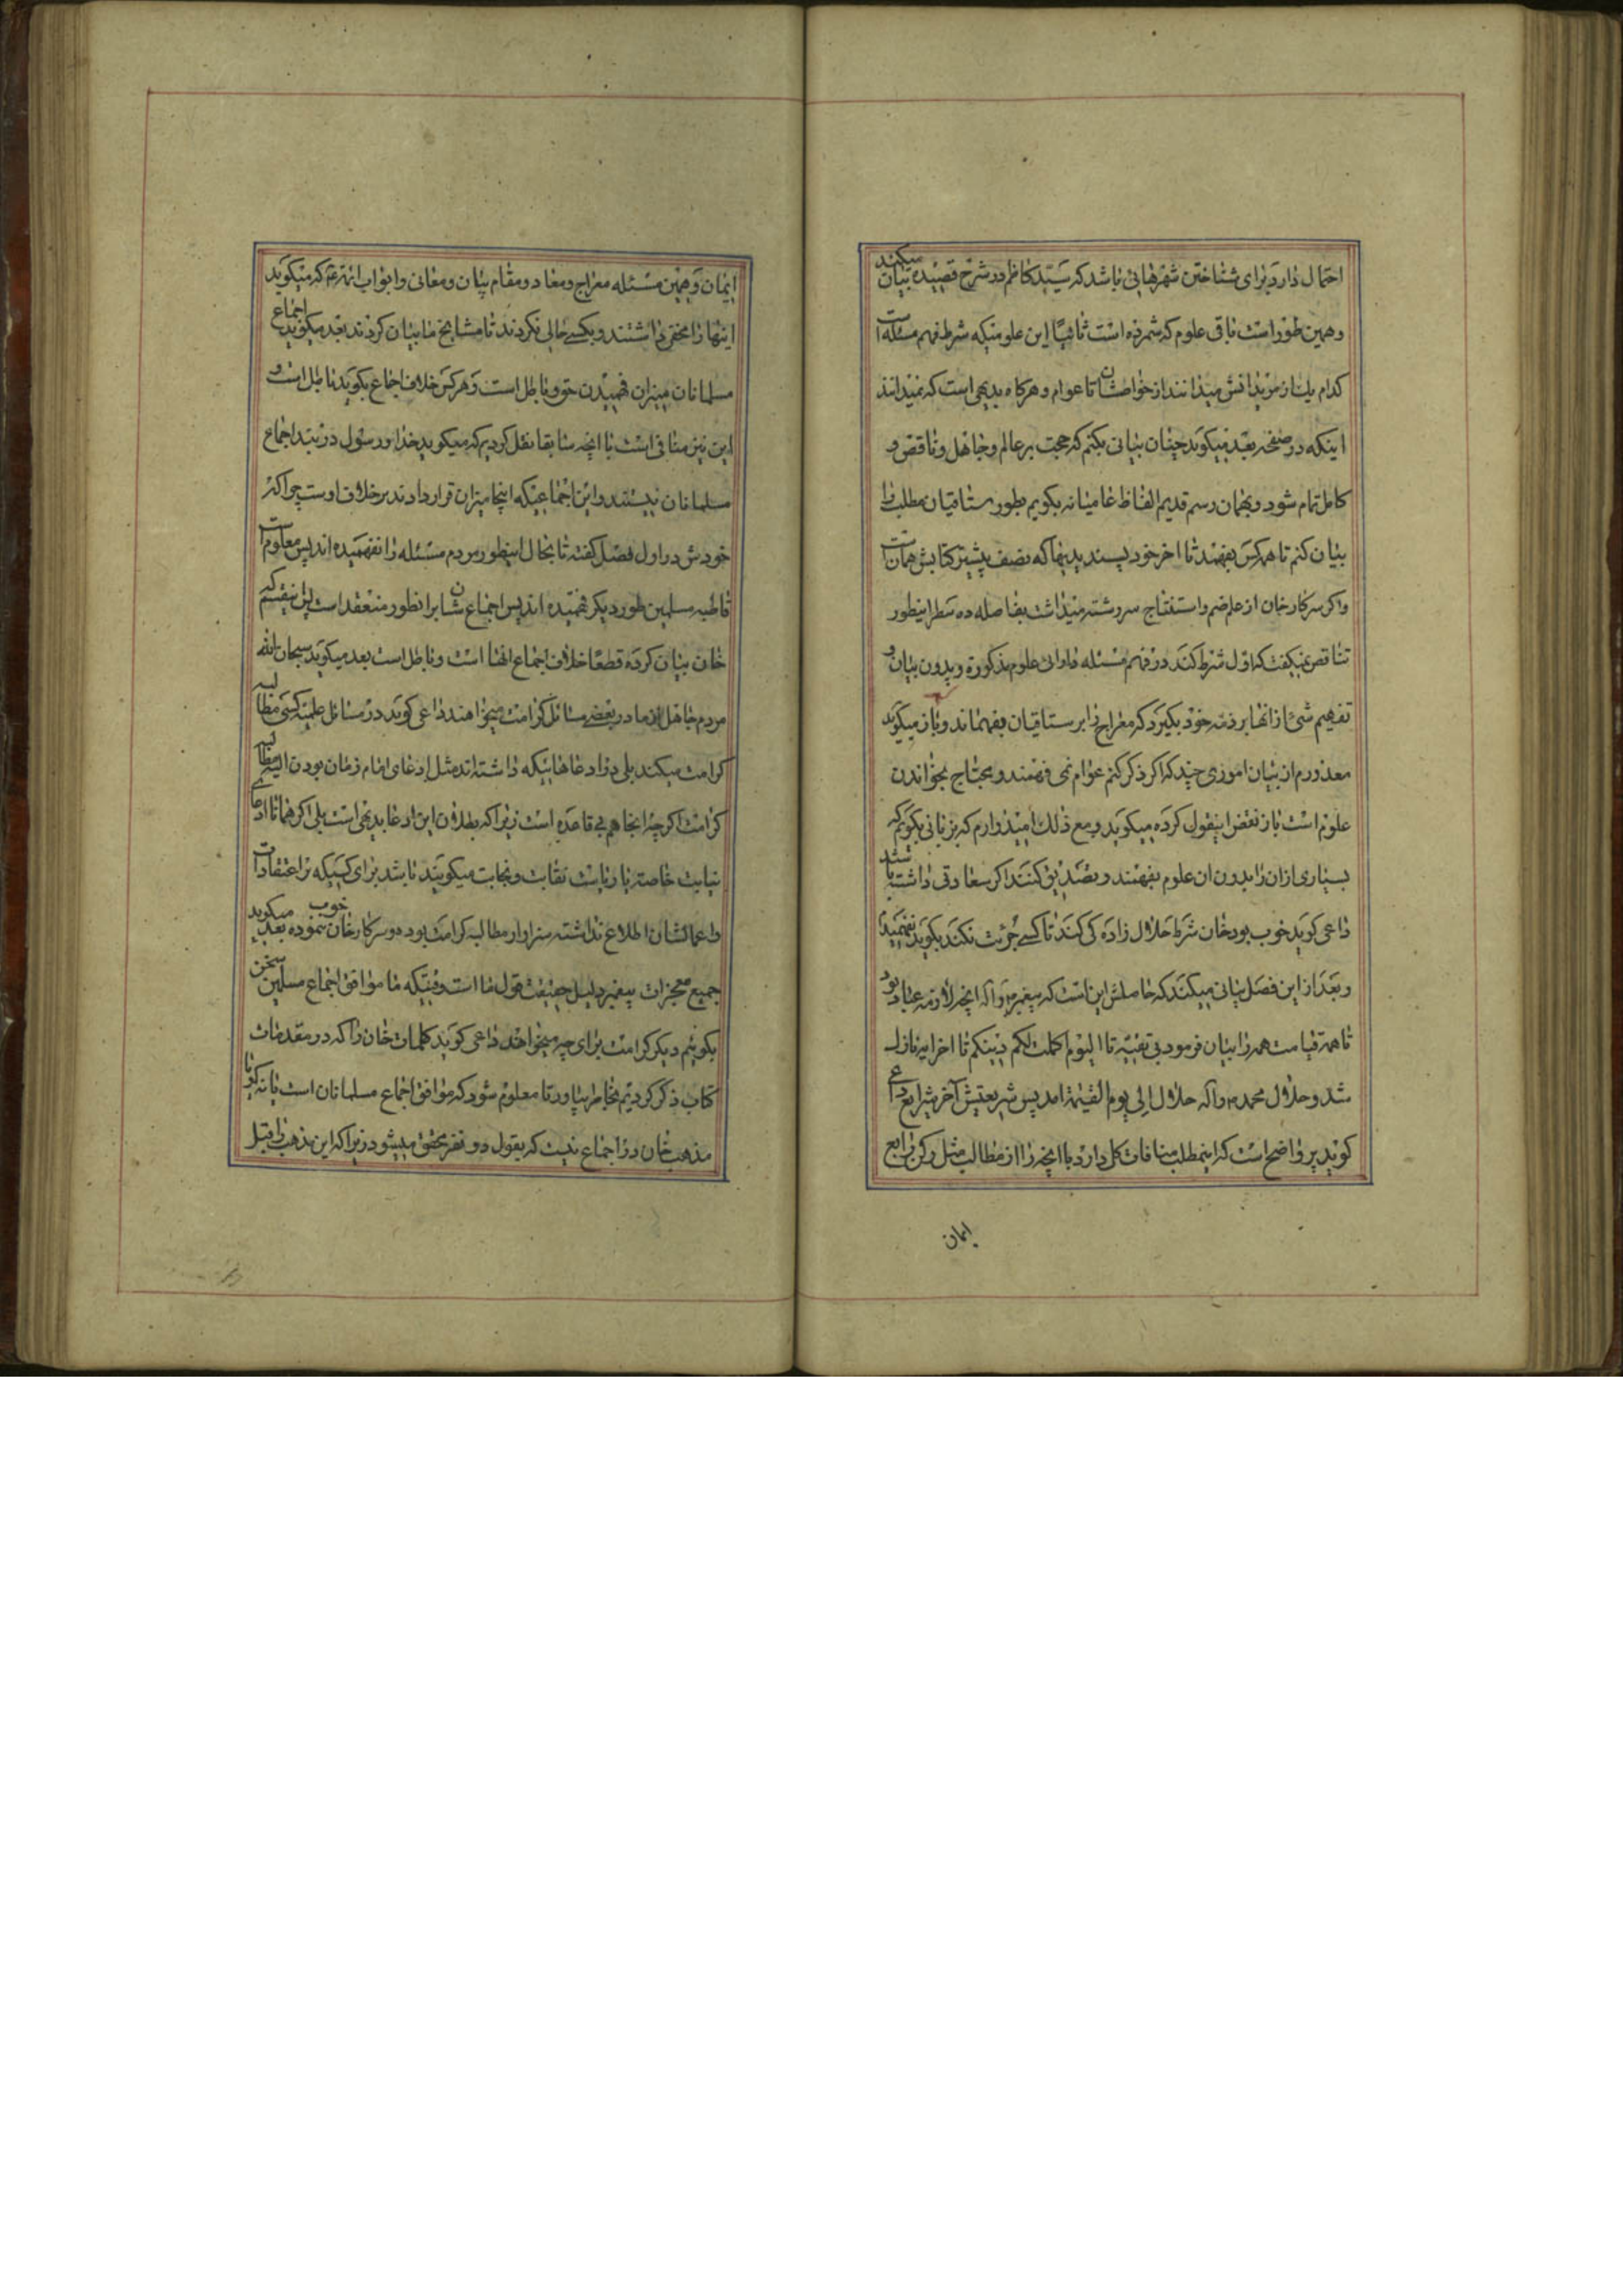 احتمال دارد برای شناختن شهرهائی باشد که سید کاظم در شرح قصیده بیان میکند
و همین طور است باقی علوم که شمرده است ثانیاً این علومیکه شرط فهم مسئله است
کدام یک از مریدانش میدانند از خواصشان تا عوام و هرگاه بدیهی است که نمیدانند
اینکه در صفحه بعد میگوید چنان بیانی بکنم که حجت بر عالم و جاهل و ناقص و
کامل تمام شود و بهمان رسم قدیم الفاظ عامیانه بگویم بطور رستاقیان مطلب را
بیان کنم تا همه کس بفهمند تا اخر خود پسندیدنها که نصف بیشتر کتابش همان است
و اگر سرکار خان از علم و استنتاج سررشته میداشت بفاصله ده سطر اینطور
تناقض نمیگفت که اول شرط کند در فهم مسئله دارائی علوم مذکوره و بدون بیان و
تفهیم شئ از انها بر ذمه خود بگیرد که معراج را برستاقیان بفهماند و باز میگوید
معذورم از بیان اموری چند که اگر ذکر کنم عوام نمی فهمند و محتاج بخواندن
علوم است باز نقض اینقول کرده میگوید و مع ذلک امیدوارم که بزبانی بگویم که
بسیاری از ان را بدون ان علوم بفهمند و تصدیق کنند اگر سعادتی داشته باشند
داعی گوید خوب بود خان شرط حلال زاده کی کند تا کسی جرئت نکند بگوید نفهمیدم
و بعد از این فصل بیانی میکند که حاصلش این است که پیغمبر ص و آله انچه لازمه عباد بود
تا همه قیامت همه را بیان فرمود بی تقیه تا الیوم اکملت لکم دینکم تا اخر ایه نازل
شد و حلال محمد ص و آله حلال الی یوم القیمة امد پس شریعتش آخر شرایع داعی
گوید پر واضح است که اینمطلب منافات کل دارد با انچه را از مطالب مثل رکن رابع
ایمان
ایمان و همین مسئله معراج و معاد و مقام بیان و معانی و ابواب ائمه ع که میگوید
اینها را مخفی داشتند و بکسی حالی نکردند تا مشایخ ما بیان کردند بعد میگوید اجماع
مسلمانان میزان فهمیدن حق و باطل است و هر کس خلاف اجماع بگوید باطل است و
این نیز منافی است با انچه سابقا نقل کردیم که میگوید خدا و رسول در بند اجماع
مسلمانان نیستند و این اجماعیکه اینجا میزان قرار دادند بر خلاف اوست چرا که
خودش در اول فصل گفته تا بحال اینطور مردم مسئله را نفهمیده اند پس معلوم است
قاطبه مسلمین طور دیگر فهمیده اند پس اجماعشان بر انطور منعقد است پس اینقسم که
خان بیان کرده قطعاً خلاف اجماع انها است و باطل است بعد میگوید سبحان الله
مردم جاهل از ما در بعضی مسائل کرامت میخواهند داعی گوید در مسائل علمیه کسی مطالبه
کرامت میکند بلی در ادعاهائیکه داشته اند مثل ادعای امام زمان بودن البته مطالبه
کرامت اگر چه انجا هم بی قاعده است زیرا که بطلان این ادعا بدیهی است بلی اگر همانا ادعای
نیابت خاصه یا ریاست نقابت و نجابت میگویند باشد برای کسیکه بر اعتقادات
و اعمالشان اطلاع نداشته سزاوار مطالبه کرامت بوده و سرکار خان خوب نموده بعد میگوید
جمیع معجزات پیغمبر دلیل حقیقت قول ما است وقتیکه ما موافق اجماع مسلمین سخن
بگوئیم دیگر کرامت برای چه میخواهند داعی گوید کلمات خان را که در مقدمات
کتاب ذکر کردیم بخاطر بیاور تا معلوم شود که موافق اجماع مسلمانان است یا نه گویا
مذهب خان در اجماع نیست که بقول دو نفر محقق میشود زیرا که این مذهب را قبل